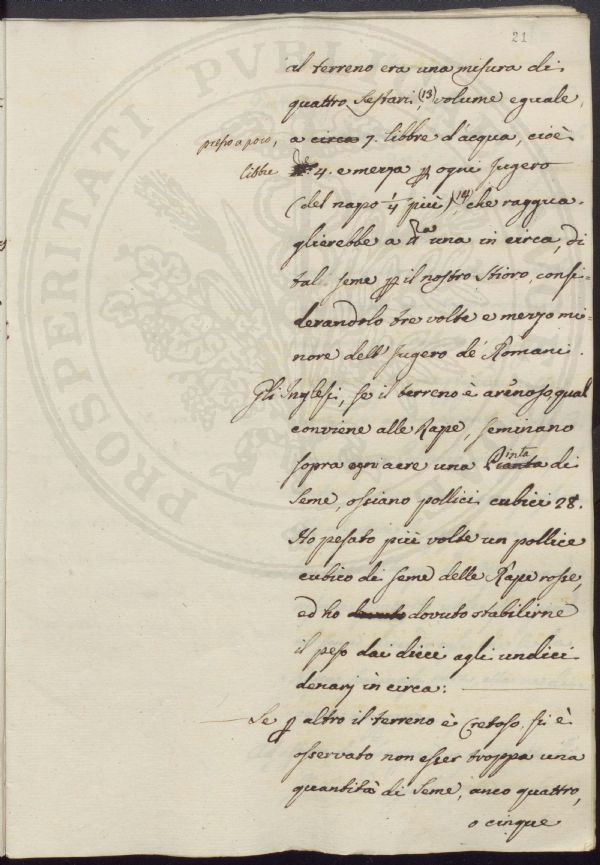 21
al terreno era una misura di
quattro Sestari, (13) volume eguale,
presso a poco, a circa 7. libbre d'acqua, cioè
libbre 4. e mezza p ogni Jugero
(del napo 1/4 più) (14), che raggua-
glierebbe a una in circa, di
tal seme p il nostro Stioro, consi-
derandolo tre volte e mezzo mi-
nore dell' Jugero de' Romani.
Gli Inglesi, se il terreno è arenoso qual
conviene alle Rape, seminano
sopra ogni acre una Pinta di
seme, ossiano pollici cubici 28.
Ho pesato più volte un pollice
cubico di seme delle Rape rosse,
ed ho dovuto dovuto stabilirne
il peso dai dieci agli undici
denarj in circa:
Se p altro il terreno è Cretoso, si è
osservato non esser troppa una
quantità di Seme, anco quattro,
o cinque
PROSPERITATI PVBLI